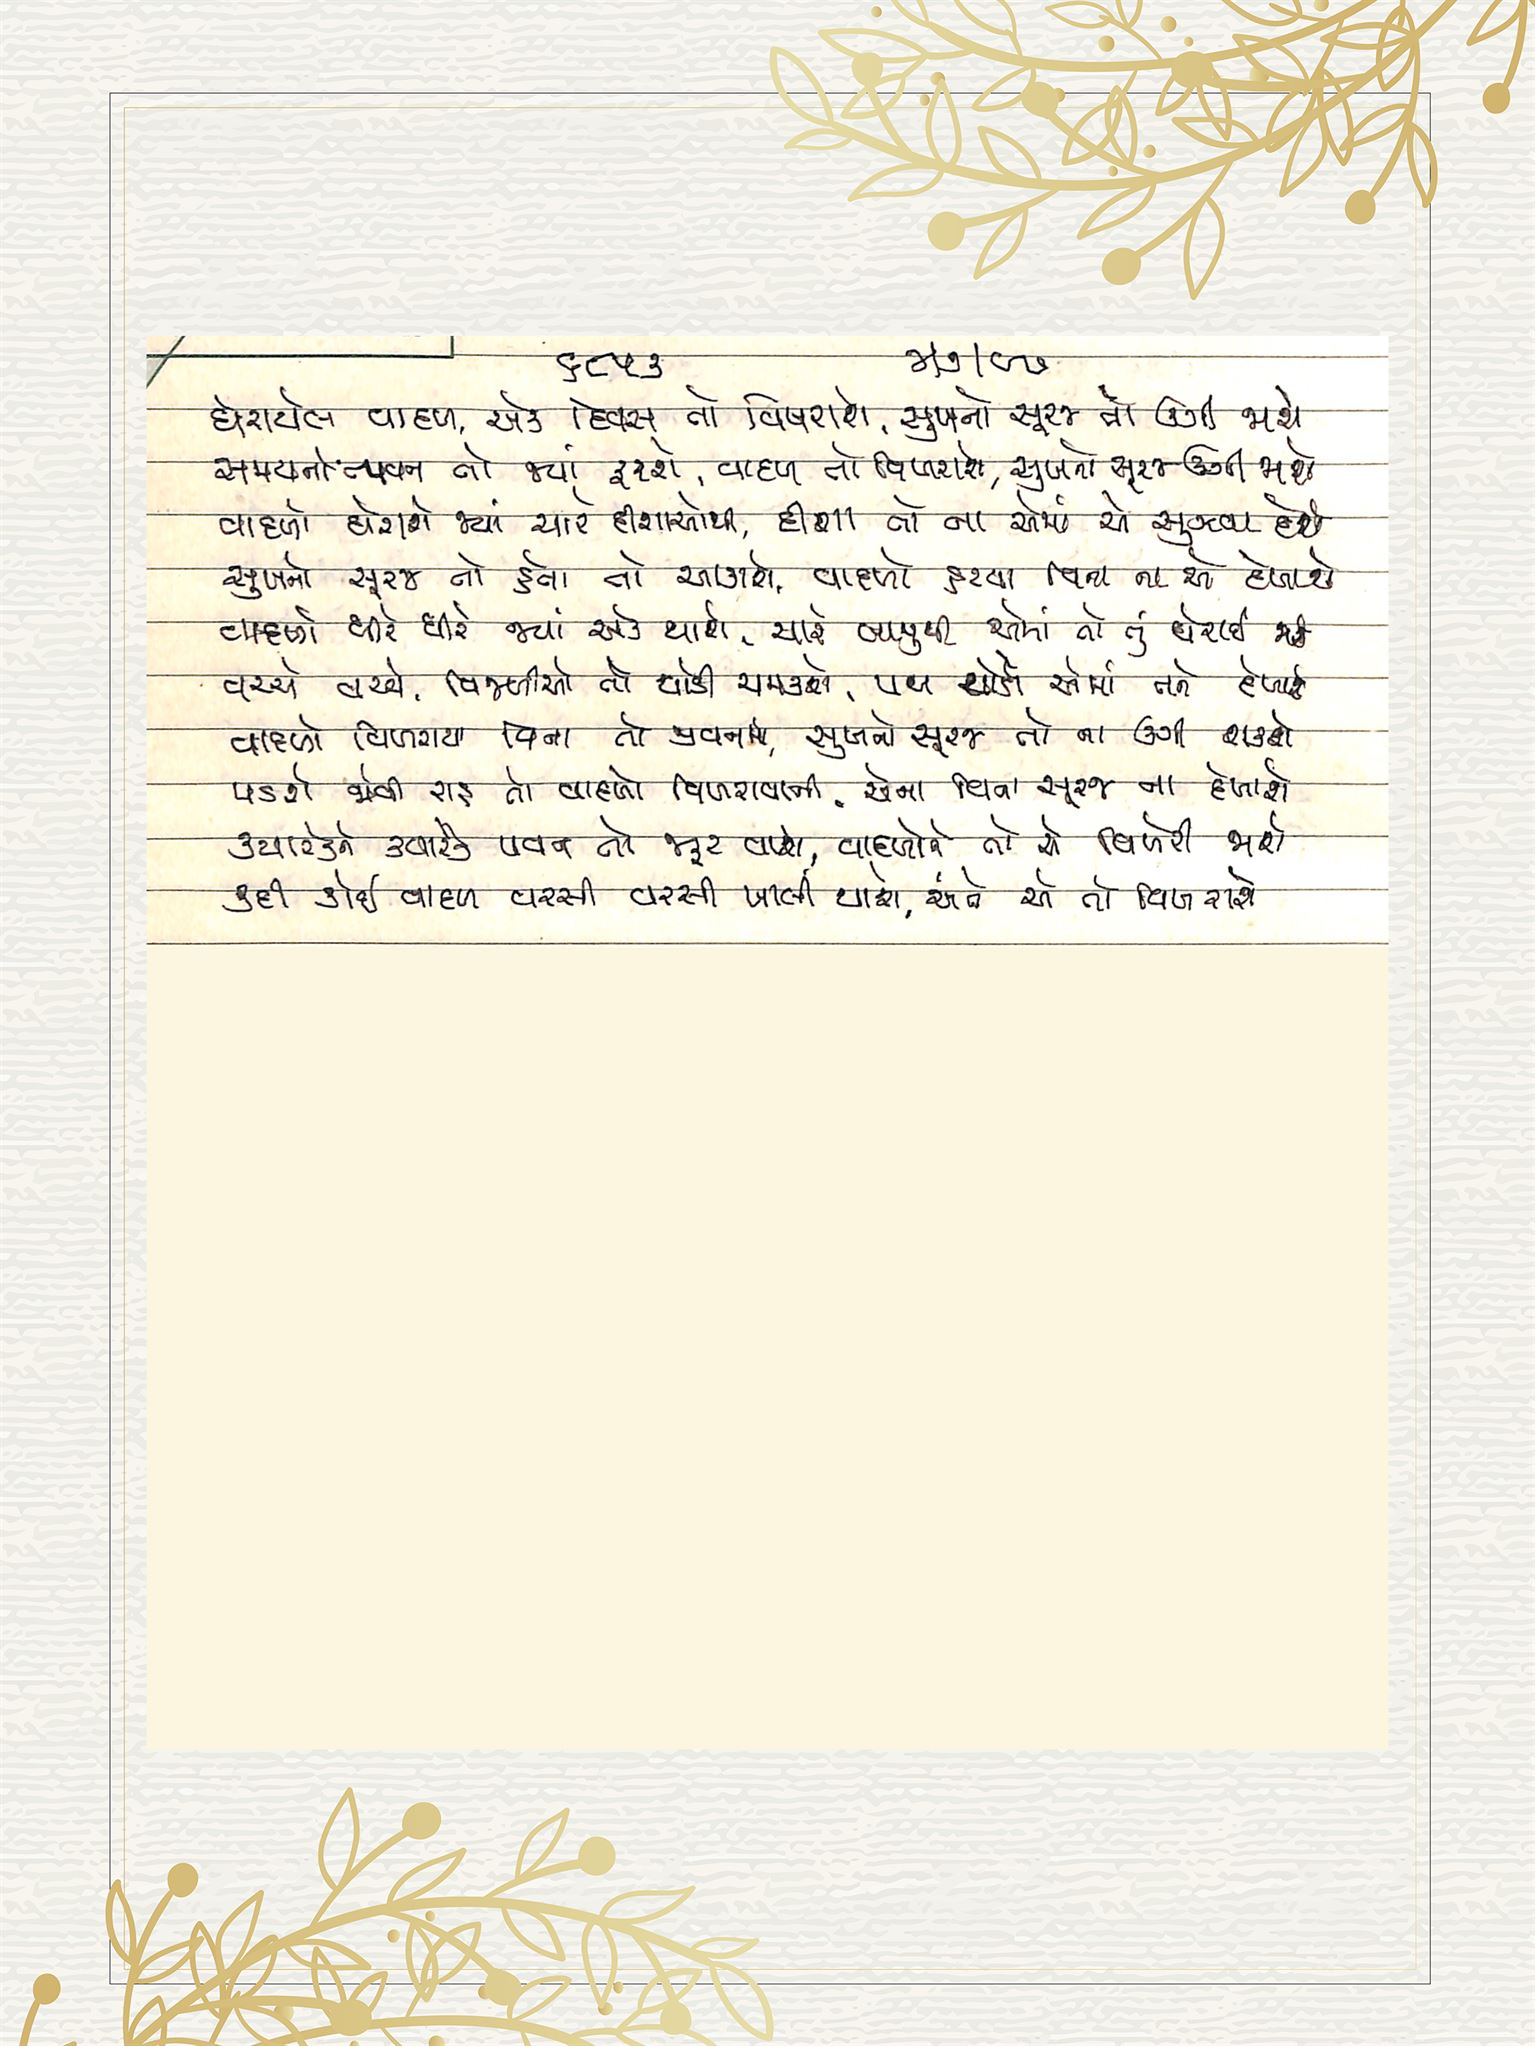 ૬૮૫૩
ઘેરાયેલ વાદળ, એક દિવસ તો વિખરાશે, સુખનો સૂરજ તો ઊગી જાશે
સમયનો પવન તો જ્યાં ફરશે, વાદળ તો વિખરાશે, સુખનો સૂરજ ઊગી જાશે
વાદળો ઘેરાશે જ્યાં ચારે દીશાઓથી, દીશા તો ના એમાં એ સુઝવા દેશે
સુખનો સૂરજ તો ક્યાં તો આવશે, વાદળો હટયા વિના ના એ દેખાશે
વાદળો ધીરે ધીરે જ્યાં એક થાશે, ચારે બાજુથી એમાં તો તું ઘેરાઈ જાશે
વચ્ચે વચ્ચે, વિજળીઓ તો થોડી ચમકશે, પથ થોડો એમાં તને દેખાશે
વાદળો વિખરાયા વિના તો જીવનમાં, સુખનો સૂરજ તો ના ઊગી શકશે
પડશે જોવી રાહ તો વાદળો વિખરાવાની, એના વિના સૂરજ ના દેખાશે
ક્યારેકને ક્યારેક પવન તો જરૂર વાશે, વાદળોને તો એ વિખેરી જાશે
કદી કોઈ વાદળ વરસી વરસી ખાલી થાશે, અંતે એ તો વિખરાશે